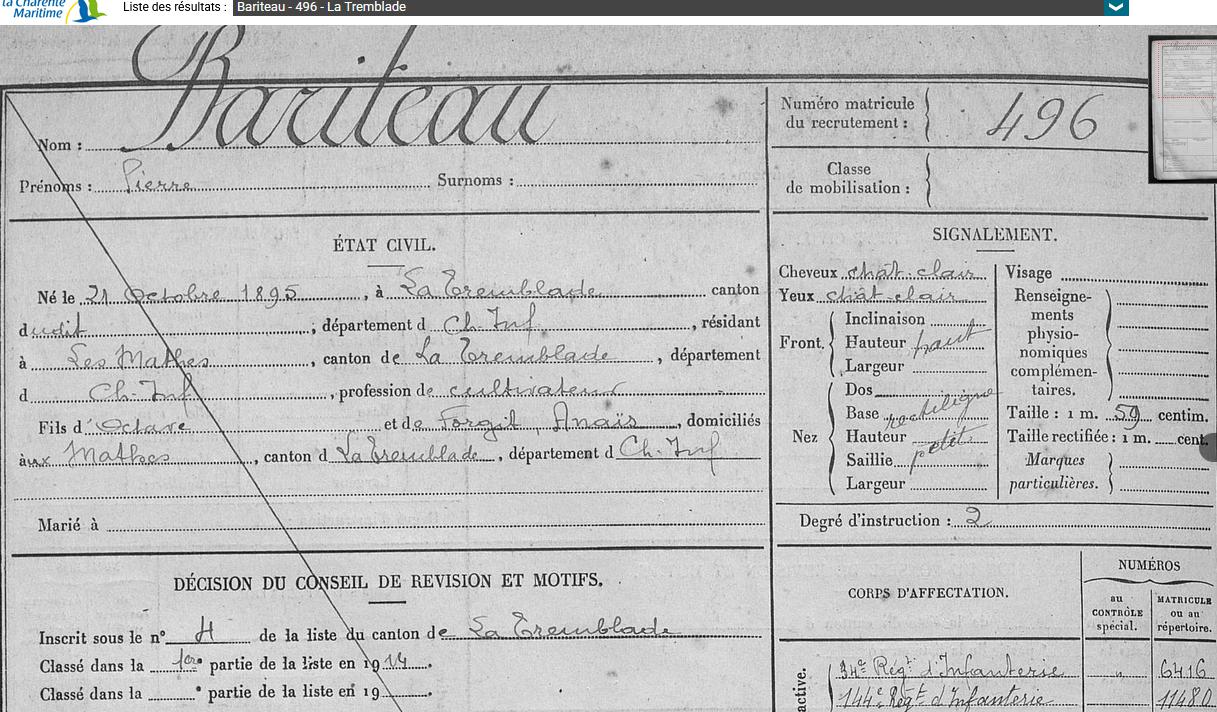 la Charente
Maritime
Liste des résultats :
Bariteau - 496 - La Tremblade
Nom : Bariteau
Prénoms : Pierre Surnoms :
Numéro matricule
du recrutement :
496
Classe
de mobilisation :
ÉTAT CIVIL.
Né le 21 Octobre 1895, à La Tremblade canton
dudit, département d Ch. Inf, résidant
à Les Mathes, canton de La Tremblade, département
d Ch. Inf, profession de cultivateur
Fils d'Octave et de Forgit Anaïs, domiciliés
aux Mathes, canton d La Tremblade, département d Ch. Inf
Marié à
SIGNALEMENT.
Cheveux chât-clair
Yeux chât-clair
Front.
Inclinaison
Hauteur haut
Largeur
Nez
Dos
Base rectiligne
Hauteur petit
Saillie
Largeur
Visage
Renseigne-
ments
physio-
nomiques
complémen-
taires.
Taille : 1 m. 59 centim.
Taille rectifiée : 1 m. cent.
Marques
particulières.
Degré d'instruction : 2
DÉCISION DU CONSEIL DE REVISION ET MOTIFS.
Inscrit sous le nº 4 de la liste du canton de La Tremblade
Classé dans la 1ere partie de la liste en 1914.
Classé dans la º partie de la liste en 19 .
CORPS D'AFFECTATION.
NUMÉROS
au
CONTRÔLE
spécial.
MATRICULE
ou au
répertoire.
active.
34e Régt d'Infanterie " 6416
144e Régt d'Infanterie 11480